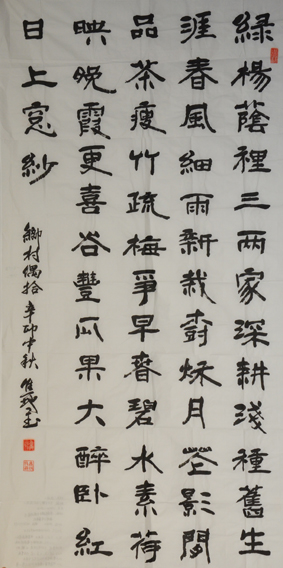 綠楊蔭裡三两家深耕淺種舊生
涯春風細雨新栽樹秋月花影閒
品茶瘦竹疏梅爭早春碧水素荷
映晚霞更喜谷豐瓜果大醉卧紅
日上窓紗
鄉村偶拾 辛卯中秋